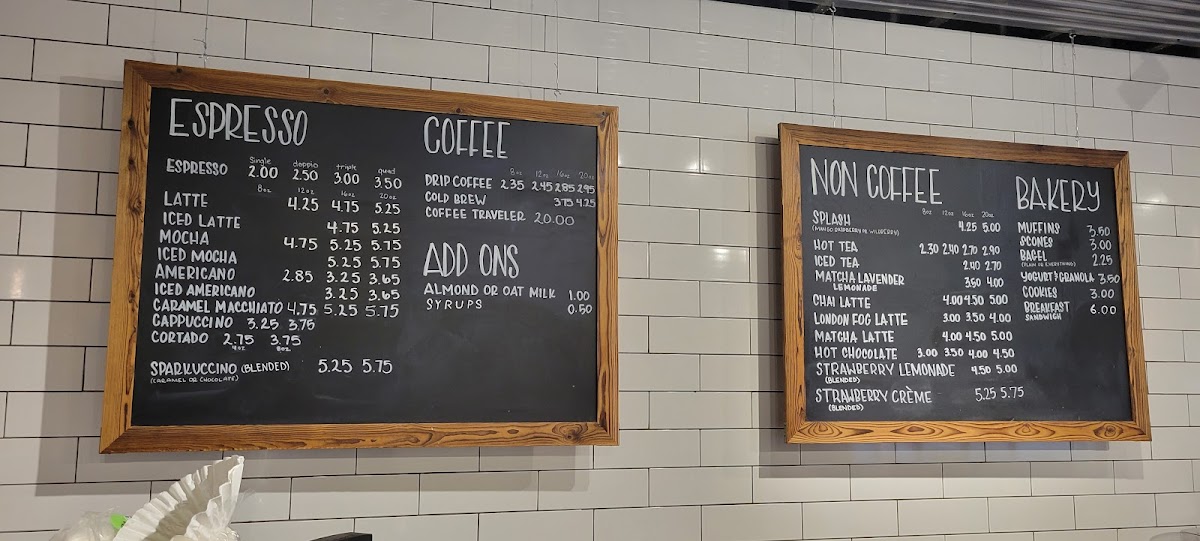 ESPRESSO
single doppio triple quad
ESPRESSO 2.00 2.50 3.00 3.50
8oz 12oz 16oz 20oz
LATTE 4.25 4.75 5.25
ICED LATTE 4.75 5.25
MOCHA 4.75 5.25 5.75
ICED MOCHA 5.25 5.75
AMERICANO 2.85 3.25 3.65
ICED AMERICANO 3.25 3.65
CARAMEL MACCHIATO 4.75 5.25 5.75
CAPPUCCINO 3.25 3.75
CORTADO 2.75 3.75
4oz 8oz
SPARKUCCINO (BLENDED) 5.25 5.75
(CARAMEL OR CHOCOLATE)
COFFEE
8oz 12oz 16oz 20oz
DRIP COFFEE 2.35 2.45 2.85 2.95
COLD BREW 3.75 4.25
COFFEE TRAVELER 20.00
ADD ONS
ALMOND OR OAT MILK 1.00
SYRUPS 0.50
NON COFFEE
8oz 12oz 16oz 20oz
SPLASH 4.25 5.00
(MANGO RASPBERRY OR WILDBERRY)
HOT TEA 2.30 2.40 2.70 2.90
ICED TEA 2.40 2.70
MATCHA LAVENDER 3.50 4.00
LEMONADE
CHAI LATTE 4.00 4.50 5.00
LONDON FOG LATTE 3.00 3.50 4.00
MATCHA LATTE 4.00 4.50 5.00
HOT CHOCOLATE 3.00 3.50 4.00 4.50
STRAWBERRY LEMONADE 4.50 5.00
(BLENDED)
STRAWBERRY CRÈME 5.25 5.75
(BLENDED)
BAKERY
MUFFINS 3.50
SCONES 3.00
BAGEL 2.25
(PLAIN OR EVERYTHING)
YOGURT & GRANOLA 3.50
COOKIES 3.00
BREAKFAST 6.00
SANDWICH